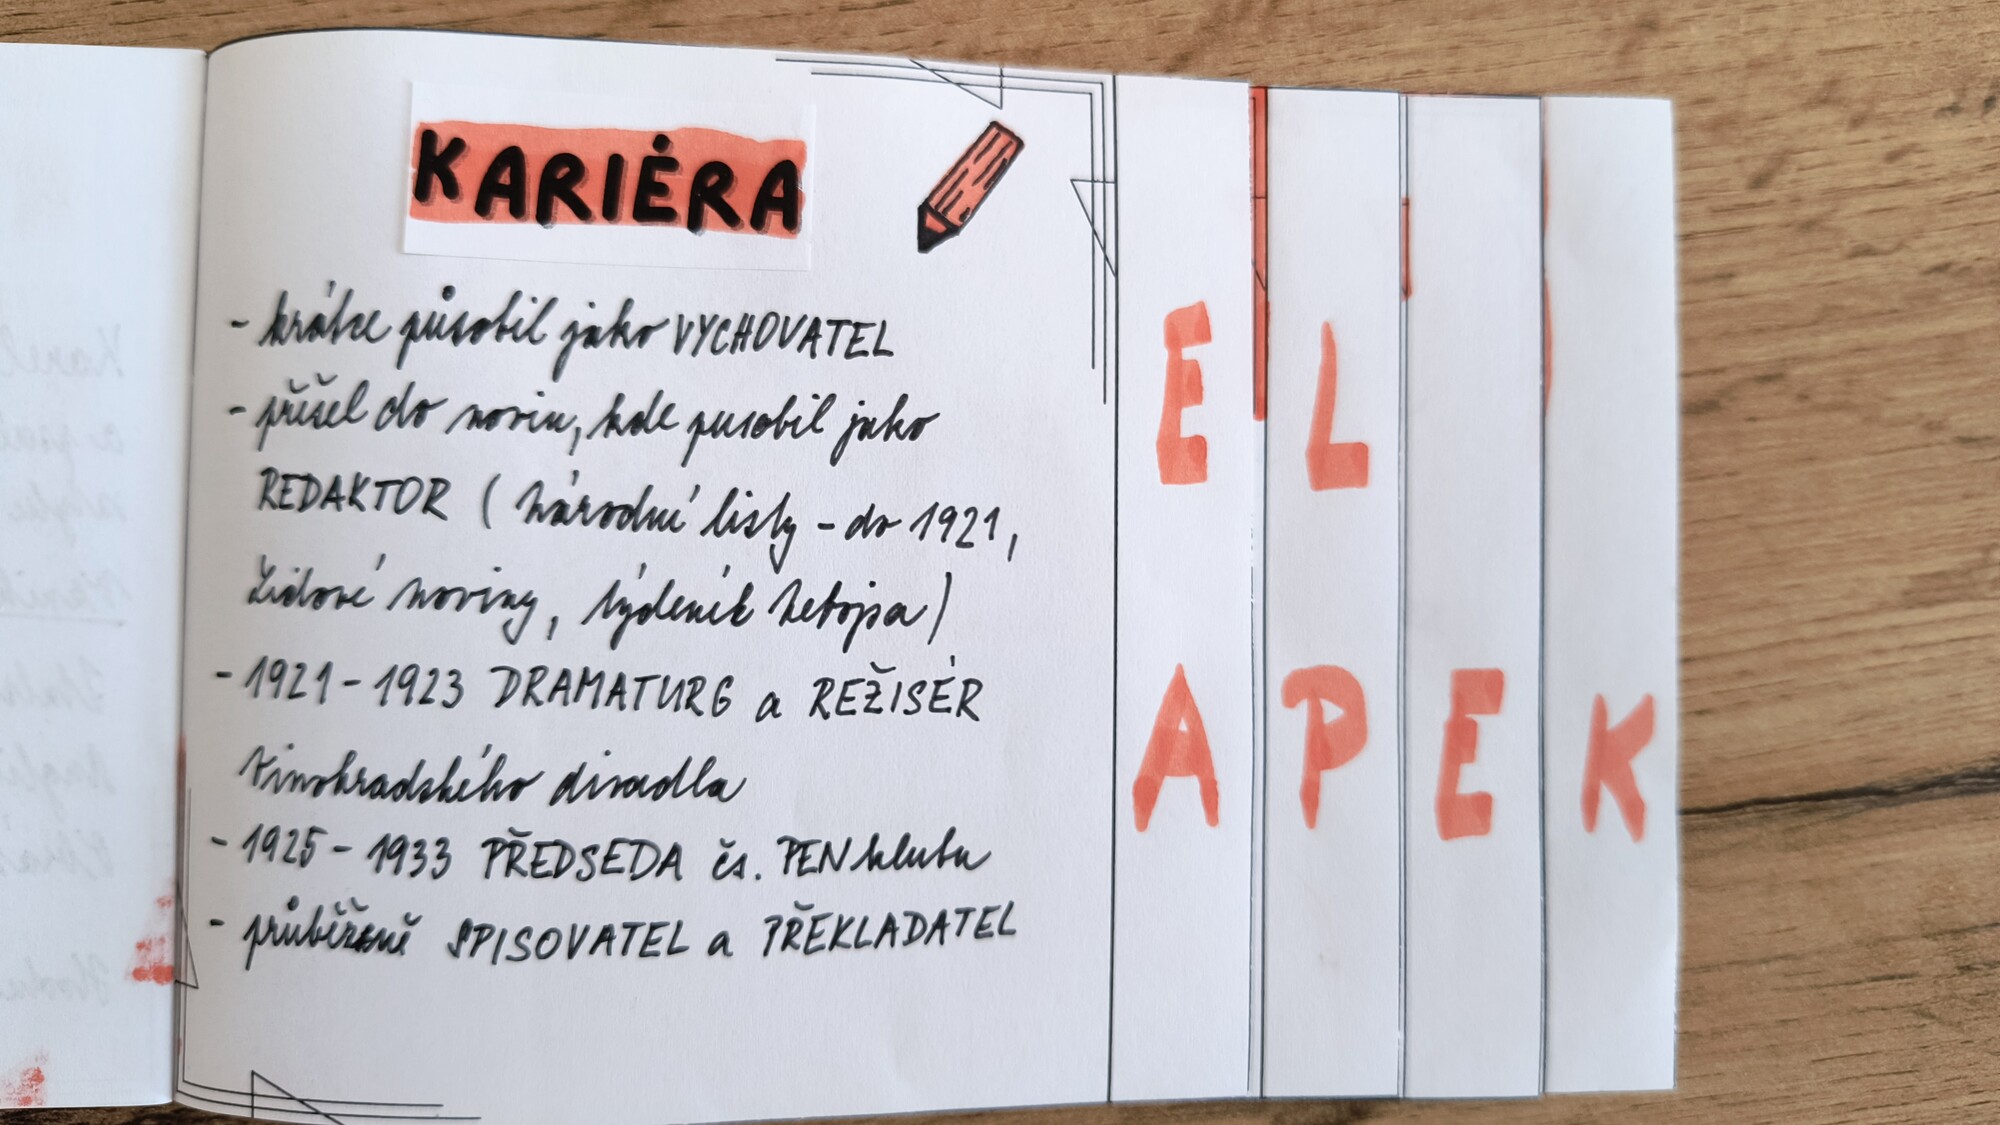 KARIÉRA
- krátce působil jako VYCHOVATEL
- přešel do novin, kde pusobil jako
REDAKTOR (Národní listy - do 1921,
Lidové noviny, týdeník Nebojsa)
- 1921 - 1923 DRAMATURG a REŽISÉR
Vinohradského divadla
- 1925 - 1933 PŘEDSEDA čs. PEN klubu
- průběžně SPISOVATEL a PŘEKLADATEL
E L
A P E K